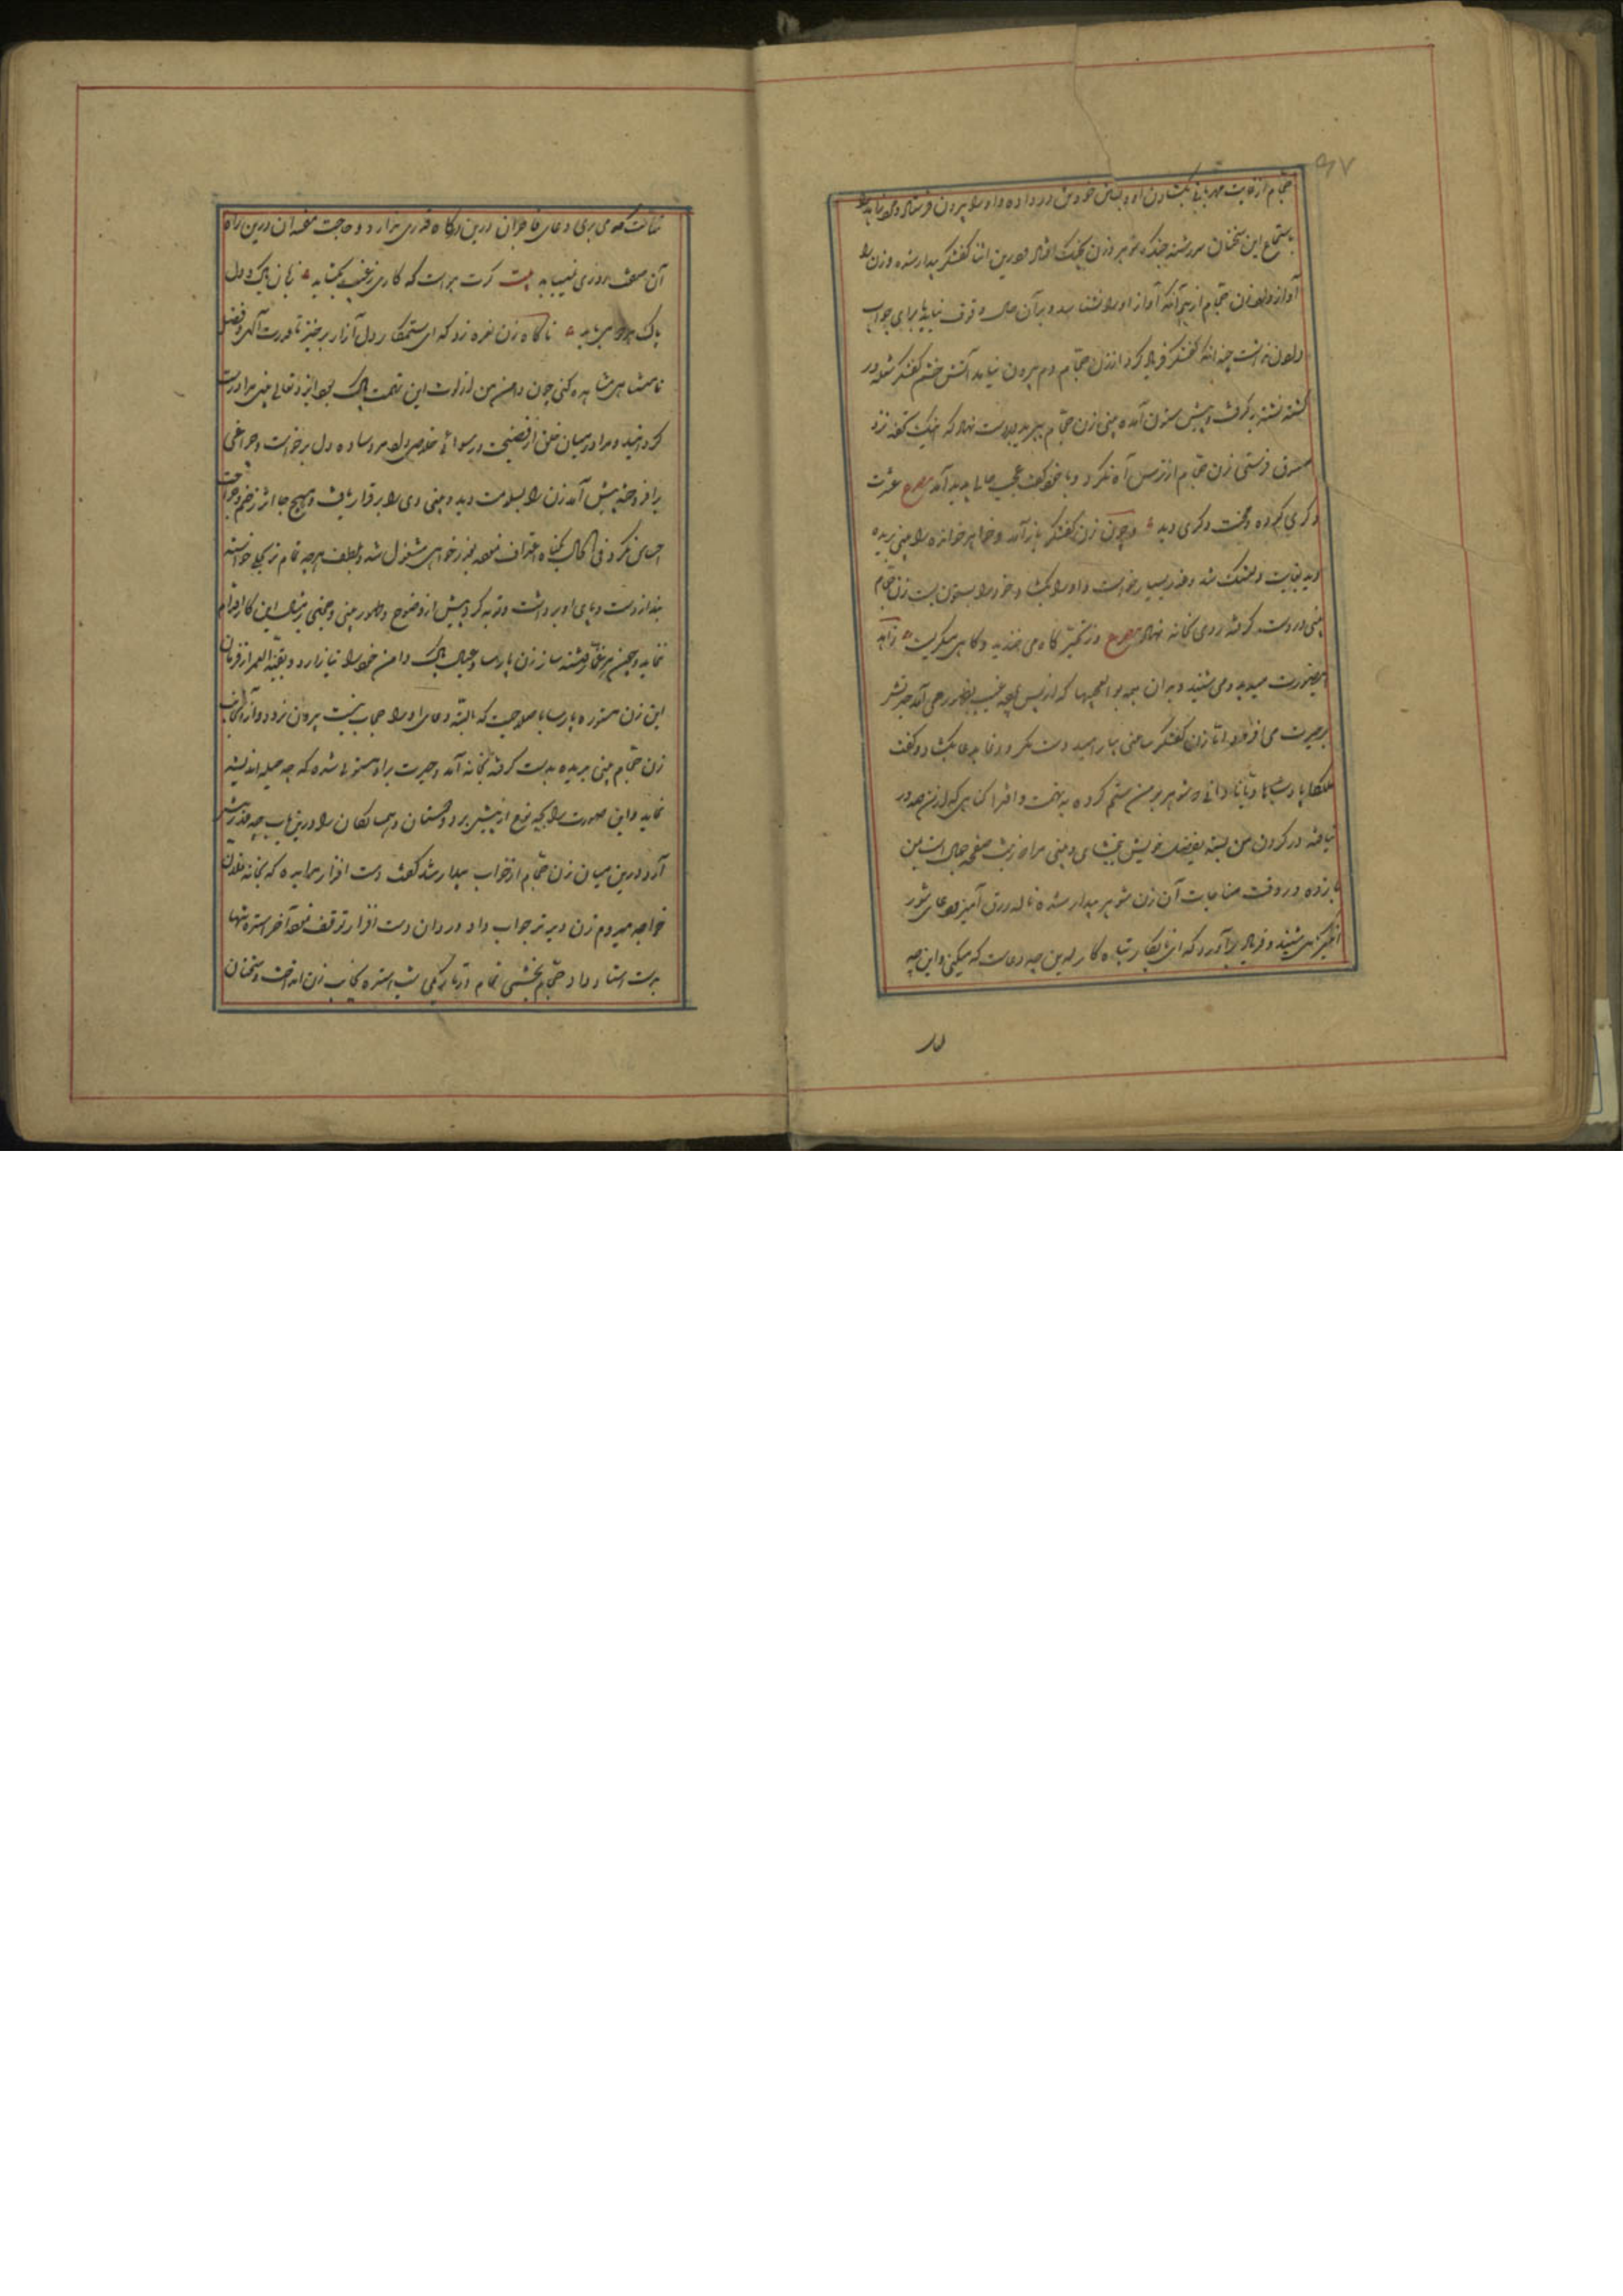 ۹۷
حجام از غایت مهربانی بگشادن او و بستن خود تن در داده او را بیرون فرستاد و زاهد را
باستماع این سخنان سررشته جنگ شوهر و زن بچنگ افتاد و درین اثنا کفشگر بیدار شده و زن را
آواز داد زن حجام از بیم آنکه آواز او را نشناسد و بر آن حال وقوف نیابد یارای جواب
دادن نداشت چندانکه کفشگر فریاد کرد از زن حجام دم بیرون نیامد آتش خشم کفشگر شعله‌ور
گشته نشتر برگرفت و پیش ستون آمده بینی زن حجام ببرید و بر دست نهاد که اینک تحفه نزد
معشوق فرستی زن حجام از ترس آه نکرد و با خود گفت عجب حالی پدید آمد مصرع عشرت
دگری کرده و محنت دگری دیده و چون زن کفشگر باز آمد و خواهر خوانده را بینی بریده
دید بغایت دلتنگ شد و عذر بسیار خواست و او را بگشاد و خود را بستون بست زن حجام
بینی در دست گرفته روی بخانه نهاد مصرع وز تحیر گاه می خندید و گاهی میگریست زاهد
این صورت میدید و می شنید و بدان همه بوالعجبیها که از پس پرده غیب بظهور می آمد حیرتش
بر حیرت می افزود اما زن کفشگر ساعتی بیارامید دست مکر و دغا بدعا بگشاد و گفت
ملکا پادشاها دانای که شوهر بر من ستم کرده و بتهمت و افترا گناهی که از من صدور
نیافته در گردن من بسته بفضل خویش ببخشای و بینی مرا که زینت صفحه جمال است بمن
باز ده در وقت مناجات آن زن شوهر بیدار شده ناله زرق آمیز و دعای شور
انگیزش شنید و فریاد برآورد که ای نابکار تباه کار این چه دعاست که میکنی و این چه
ثناست که می بری دعای فاجران درین درگاه قدری ندارد و حاجت مفسدان درین راه
آن صفت روزی نیابد بیت گرت هواست که کاری ز غیب بگشاید زبان پاک و دل
پاک هر دو می باید ناگاه زن نعره زد که ای ستمکار دل آزار برخیز تا قدرت آلهی و فضل
نامتناهی مشاهده کنی چون دامن من از لوث این تهمت پاک بود ایزد تعالی بینی مرا درست
گردانید و مرا در میان خلق از فضیحت و رسوائی خلاصی داد مرد ساده دل برخاست و چراغی
برافروخته پیش آمد زن را بسلامت دید و بینی وی را برقرار یافت و هیچ جا اثر زخم و جراحت
احساس نکرد فی الحال بگناه اعتراف نموده بعذرخواهی مشغول شد و بلطف هر چه تمام تر بحلی خواسته
بند از دست و پای او برداشت و توبه کرد که پیش از وضوح و ظهور بینی و حجتی بمثل این کار اقدام
ننماید و بسخن هر غماز فتنه ساز زن پارسا و عیال پاک دامن خود را نیازارد و بقیة العمر از فرمان
این زن مستوره پارسا با صلاحیت که البته دعای او را حجاب نیست بیرون نرود و از آن جانب
زن حجام بینی بریده بدست گرفته بخانه آمد و حیرت براو مستولی شده که چه حیله اندیشد
نماید و این صورت را بچه نوع از پیش برد و دوستان و همسایگان را درین باب چه عذر پیش
آرد درین میان زن حجام از خواب بیدار شد گفت دست افزار مرا بده که بخانه فلان
خواجه میروم زن دیرتر جواب داد و در دادن دست افزار توقف نموده آخر استره تنها
بدست استاد داد حجام بخشم تمام در تاریکی شب استره بجانب زن انداخت و سخنان